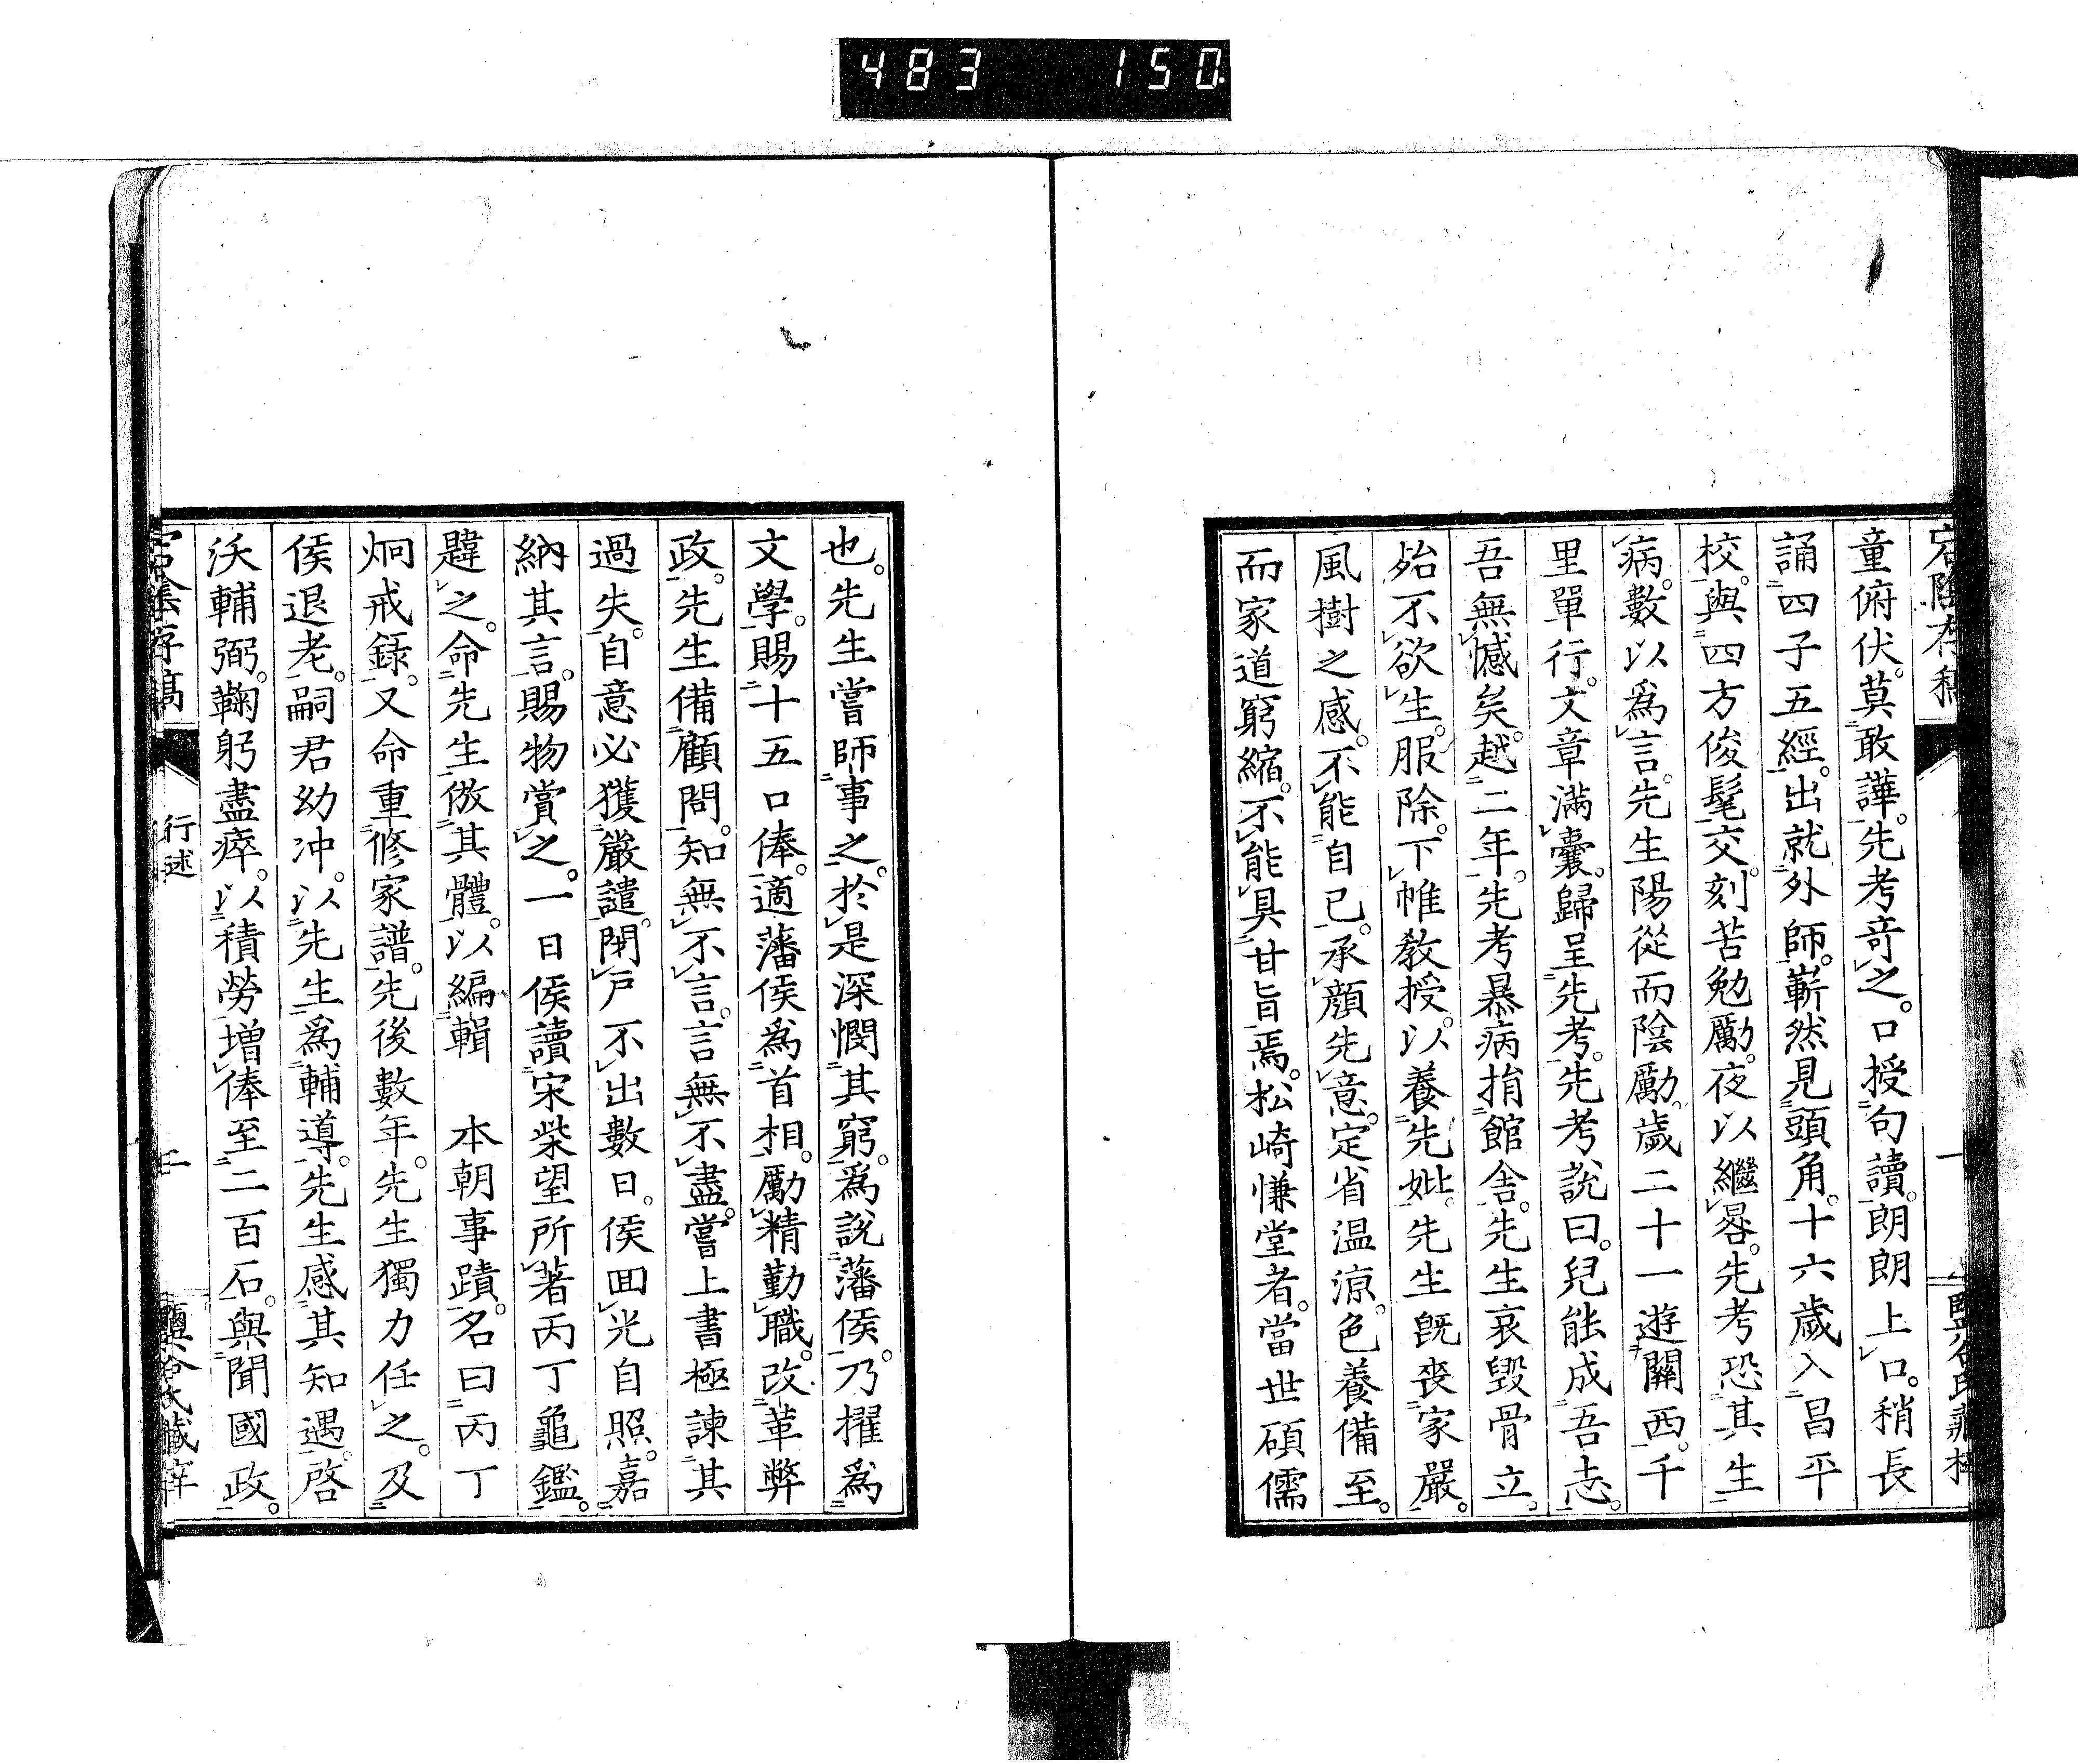 483 150
童俯伏。莫敢譁。先考奇之。口授句讀。朗朗上口。稍長
誦四子五經。出就外師。嶄然見頭角。十六歲入昌平
校。與四方俊髦交。刻苦勉勵。夜以繼晷。先考恐其生
病。數以爲言。先生陽從而陰勵。歲二十一遊關西。千
里單行。文章滿囊。歸呈先考。先考說曰。兒能成吾志。
吾無憾矣。越二年。先考暴病捐館舍。先生哀毀骨立。
殆不欲生。服除。下帷教授。以養先妣。先生旣喪家嚴。
風樹之感。不能自已。承顏先意。定省温凊。色養備至。
而家道窮縮。不能具甘旨焉。松崎慊堂者。當世碩儒
也。先生嘗師事之。於是深憫其窮。爲說藩侯。乃擢爲
文學。賜十五口俸。適藩侯爲首相。勵精勤職。改革弊
政。先生備顧問。知無不言。言無不盡。嘗上書極諫其
過失。自意必獲嚴譴。閉戶不出數日。侯囬光自照。嘉
納其言。賜物賞之。一日侯讀宋柴望所著丙丁龜鑑。
韙之。命先生倣其體。以編輯 本朝事蹟。名曰丙丁
炯戒錄。又命重修家譜。先後數年。先生獨力任之。及
侯退老。嗣君幼冲。以先生爲輔導。先生感其知遇。啓
沃輔弼。鞠躬盡瘁。以積勞增俸至二百石。與聞國政。
行述